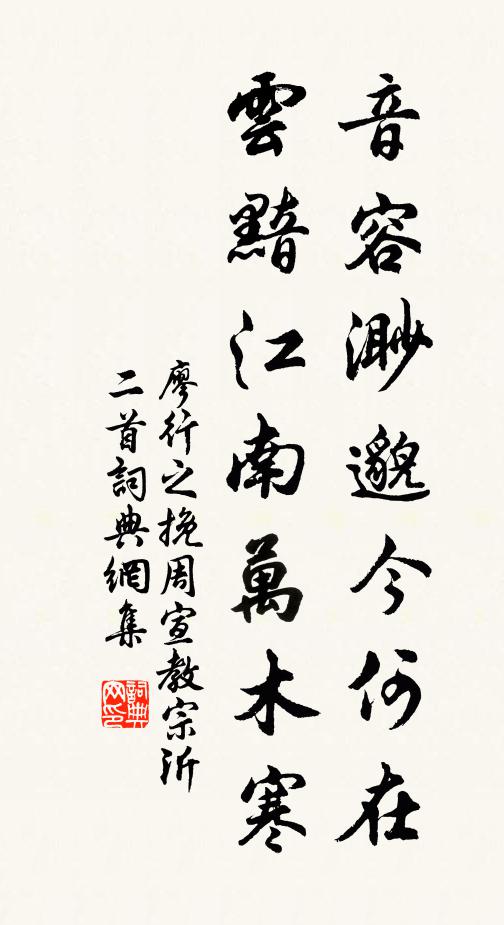 音容渺邈今何在
雲黯江南萬木寒
廖行之挽周宣教宗沂
二首詞典網集
詞典
网印